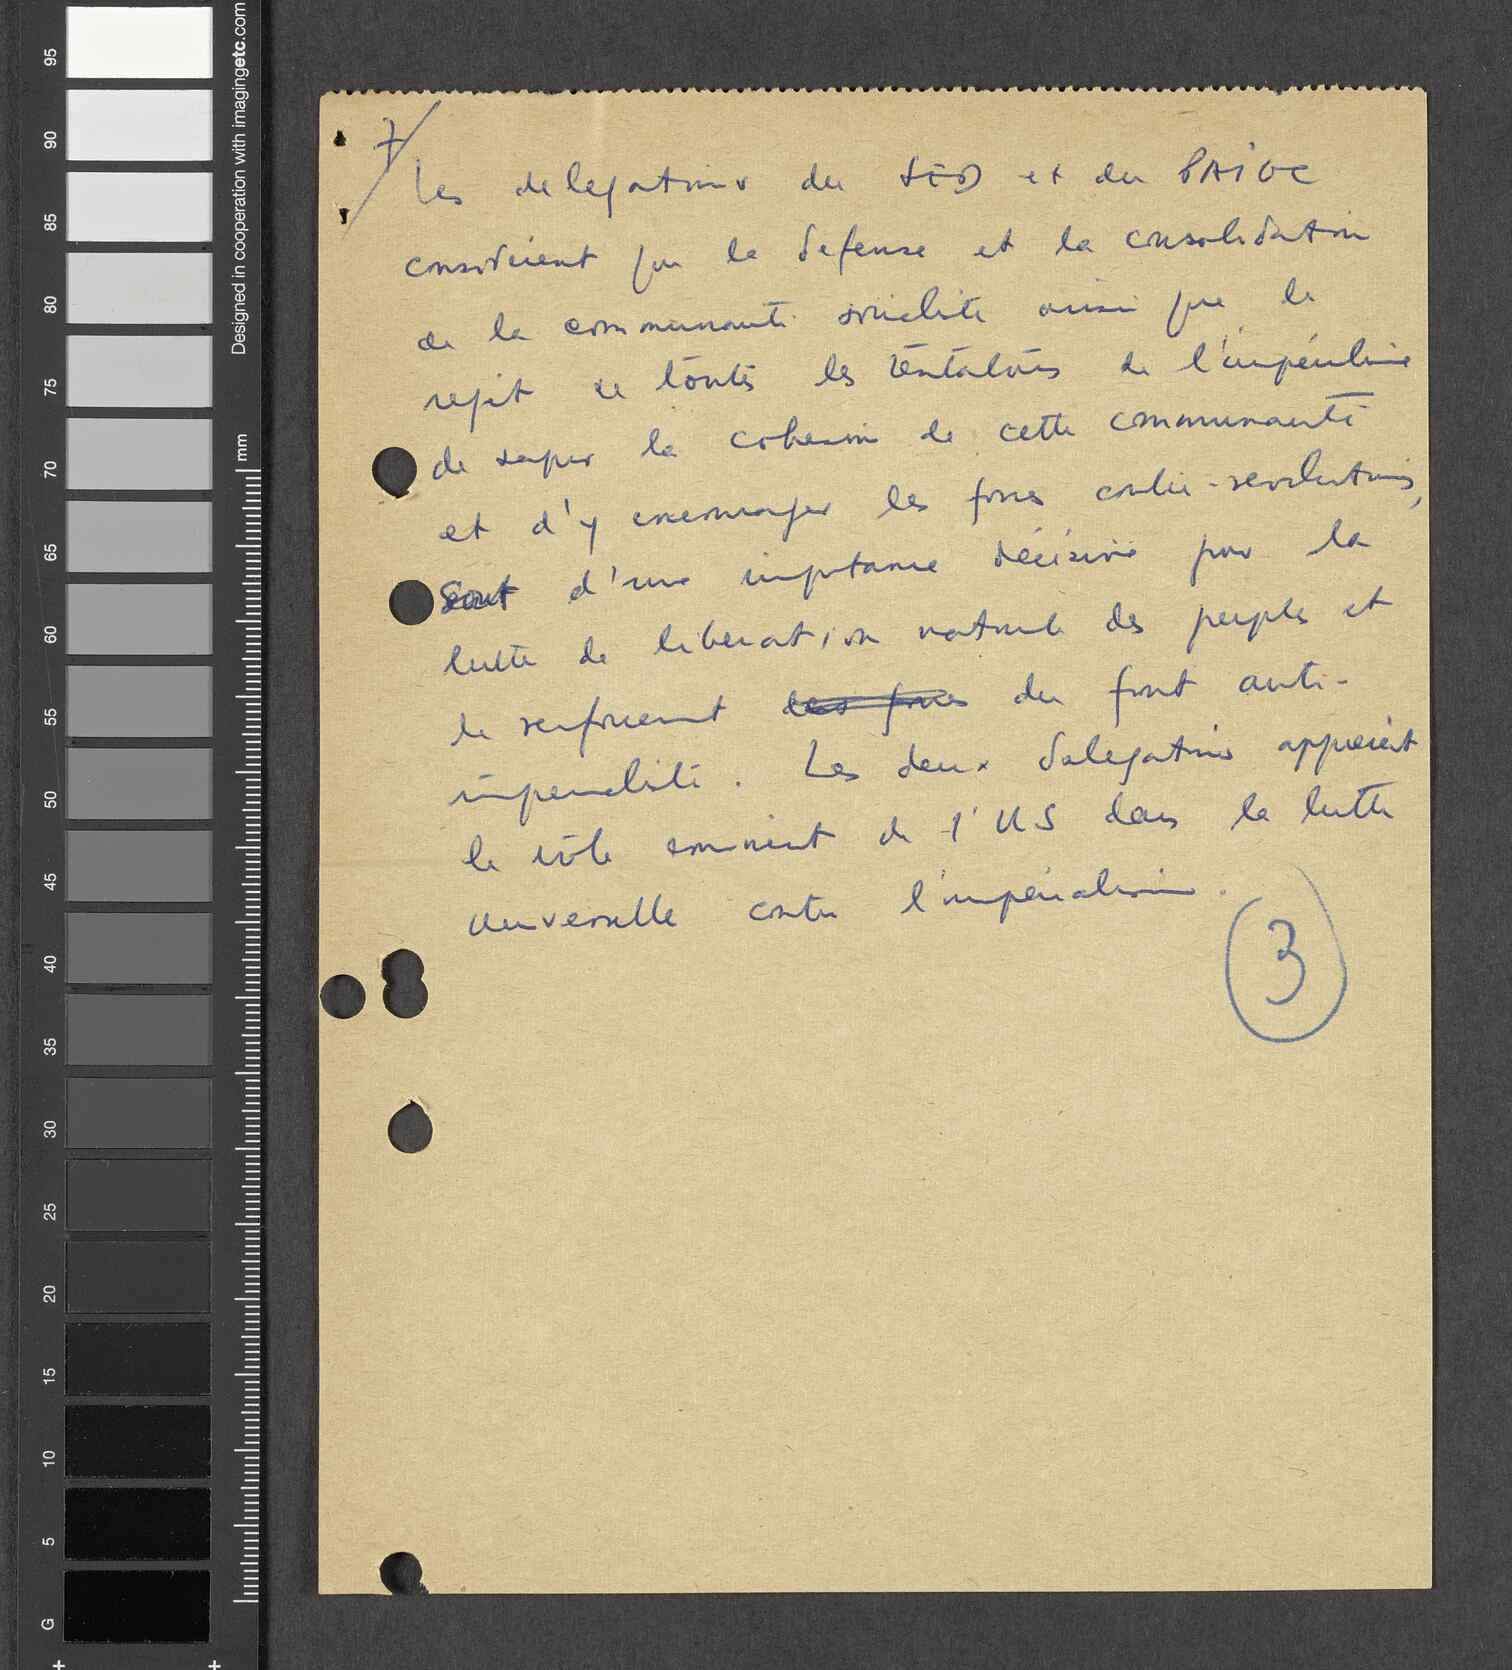 95
90
85
80
75
70
65
60
55
50
45
40
35
30
25
20
15
10
5
G
Designed in cooperation with imagingetc.com
mm
7/
Les delegations du SED et du PAIGC
considèrent que la défense et la consolidation
de la communauté socialiste ainsi que le
rejet de toutes les tentatives de l'impérialisme
de saper la cohesion de cette communauté
et d'y encourager les forces contre-revolutionnaires,
sont d'une importance décisive pour la
lutte de liberation nationale des peuples et
le renforcement des forces du front anti-
imperialiste. Les deux délégations apprécient
le rôle eminent de l'US dans la lutte
universelle contre l'impérialisme.
3